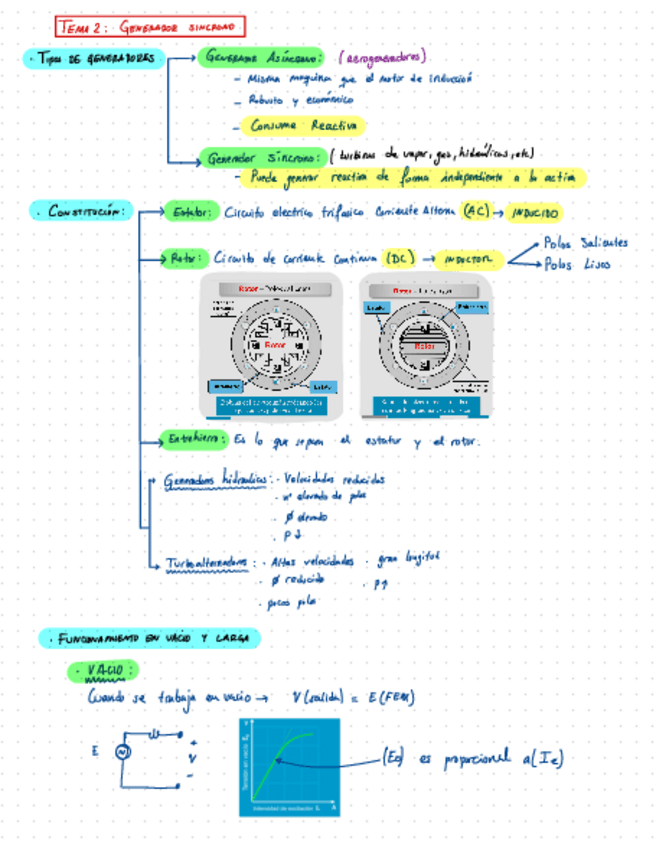 TEMA 2: GENERADOR SINCRONO
· TIPOS DE GENERADORES
GENERADOR ASÍNCRONO: (aerogeneradores)
- Misma maquina que el motor de inducción
- Robusto y económico
- Consume Reactiva
Generador Síncrono: (turbinas de vapor, gas, hidráulicas, etc)
- Puede generar reactiva de forma independiente a la activa
· CONSTITUCIÓN:
Estator: Circuito electrico trifasico Corriente Alterna (AC) → INDUCIDO
Rotor: Circuito de corriente continua (DC) → INDUCTOR
Polos Salientes
Polos Lisos
Rotor
Rotor
Entrehierro: Es lo que separa el estator y el rotor.
Generadores hidraulicos: · Velocidades reducidas
· nº elevado de polos
· Ø elevado
· P↓
Turboalternadores: · Altas velocidades · gran longitud
· Ø reducido · P↑
· pocos polos
· FUNCIONAMIENTO EN VACIO Y CARGA
· VACIO:
Cuando se trabaja en vacio → V(salida) = E(FEM)
E
+
V
-
Tensión en vacío E₀
V
(E₀) es proporcional a (Ie)
Intensidad de excitación Iₑ A